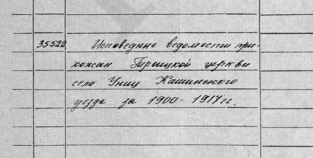 35522 Исповедные ведомости при-
хожан Троицкой церкви
села Уницы Кашинского
уезда за 1900-1917 гг.